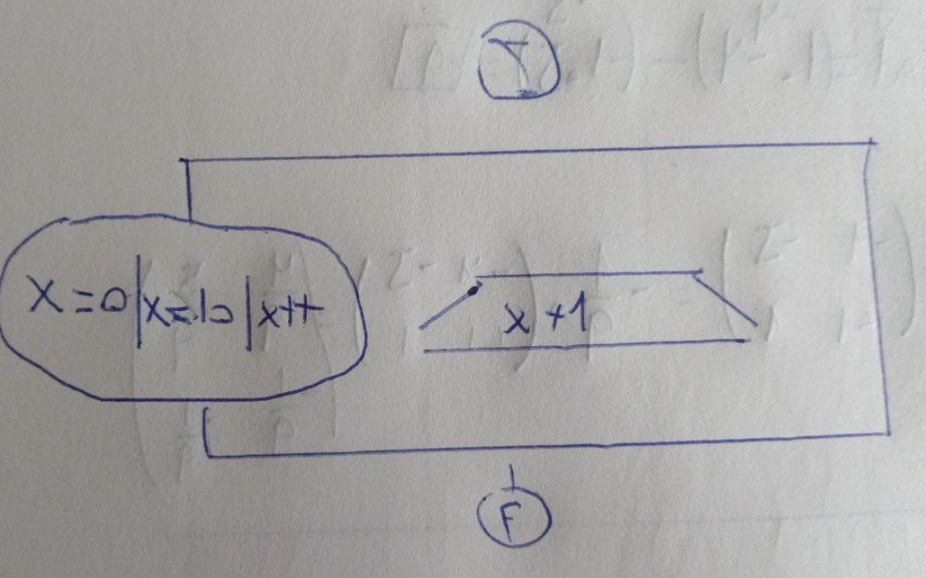 I
X=0|x=10|x++
x+1
F